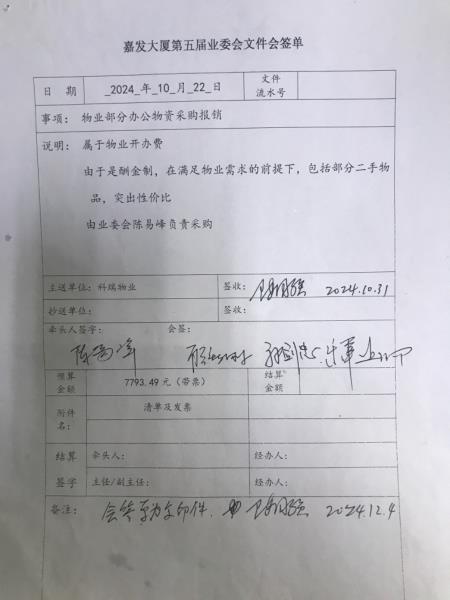 嘉发大厦第五届业委会文件会签单
日 期 _2024_年_10_月_22_日 文件流水号
事项: 物业部分办公物资采购报销
说明: 属于物业开办费
由于是酬金制,在满足物业需求的前提下,包括部分二手物
品,突出性价比
由业委会陈易峰负责采购
主送单位: 科瑞物业 签收: 2024.10.31
抄送单位: 签收:
牵头人签字: 会签:
陈易峰
预算金额 7793.49 元(带票) 结算金额
附件名: 清单及发票
结算签字 牵头人: 经办人:
主任/副主任: 经办人:
备注: 会签单为复印件. 2024.12.4